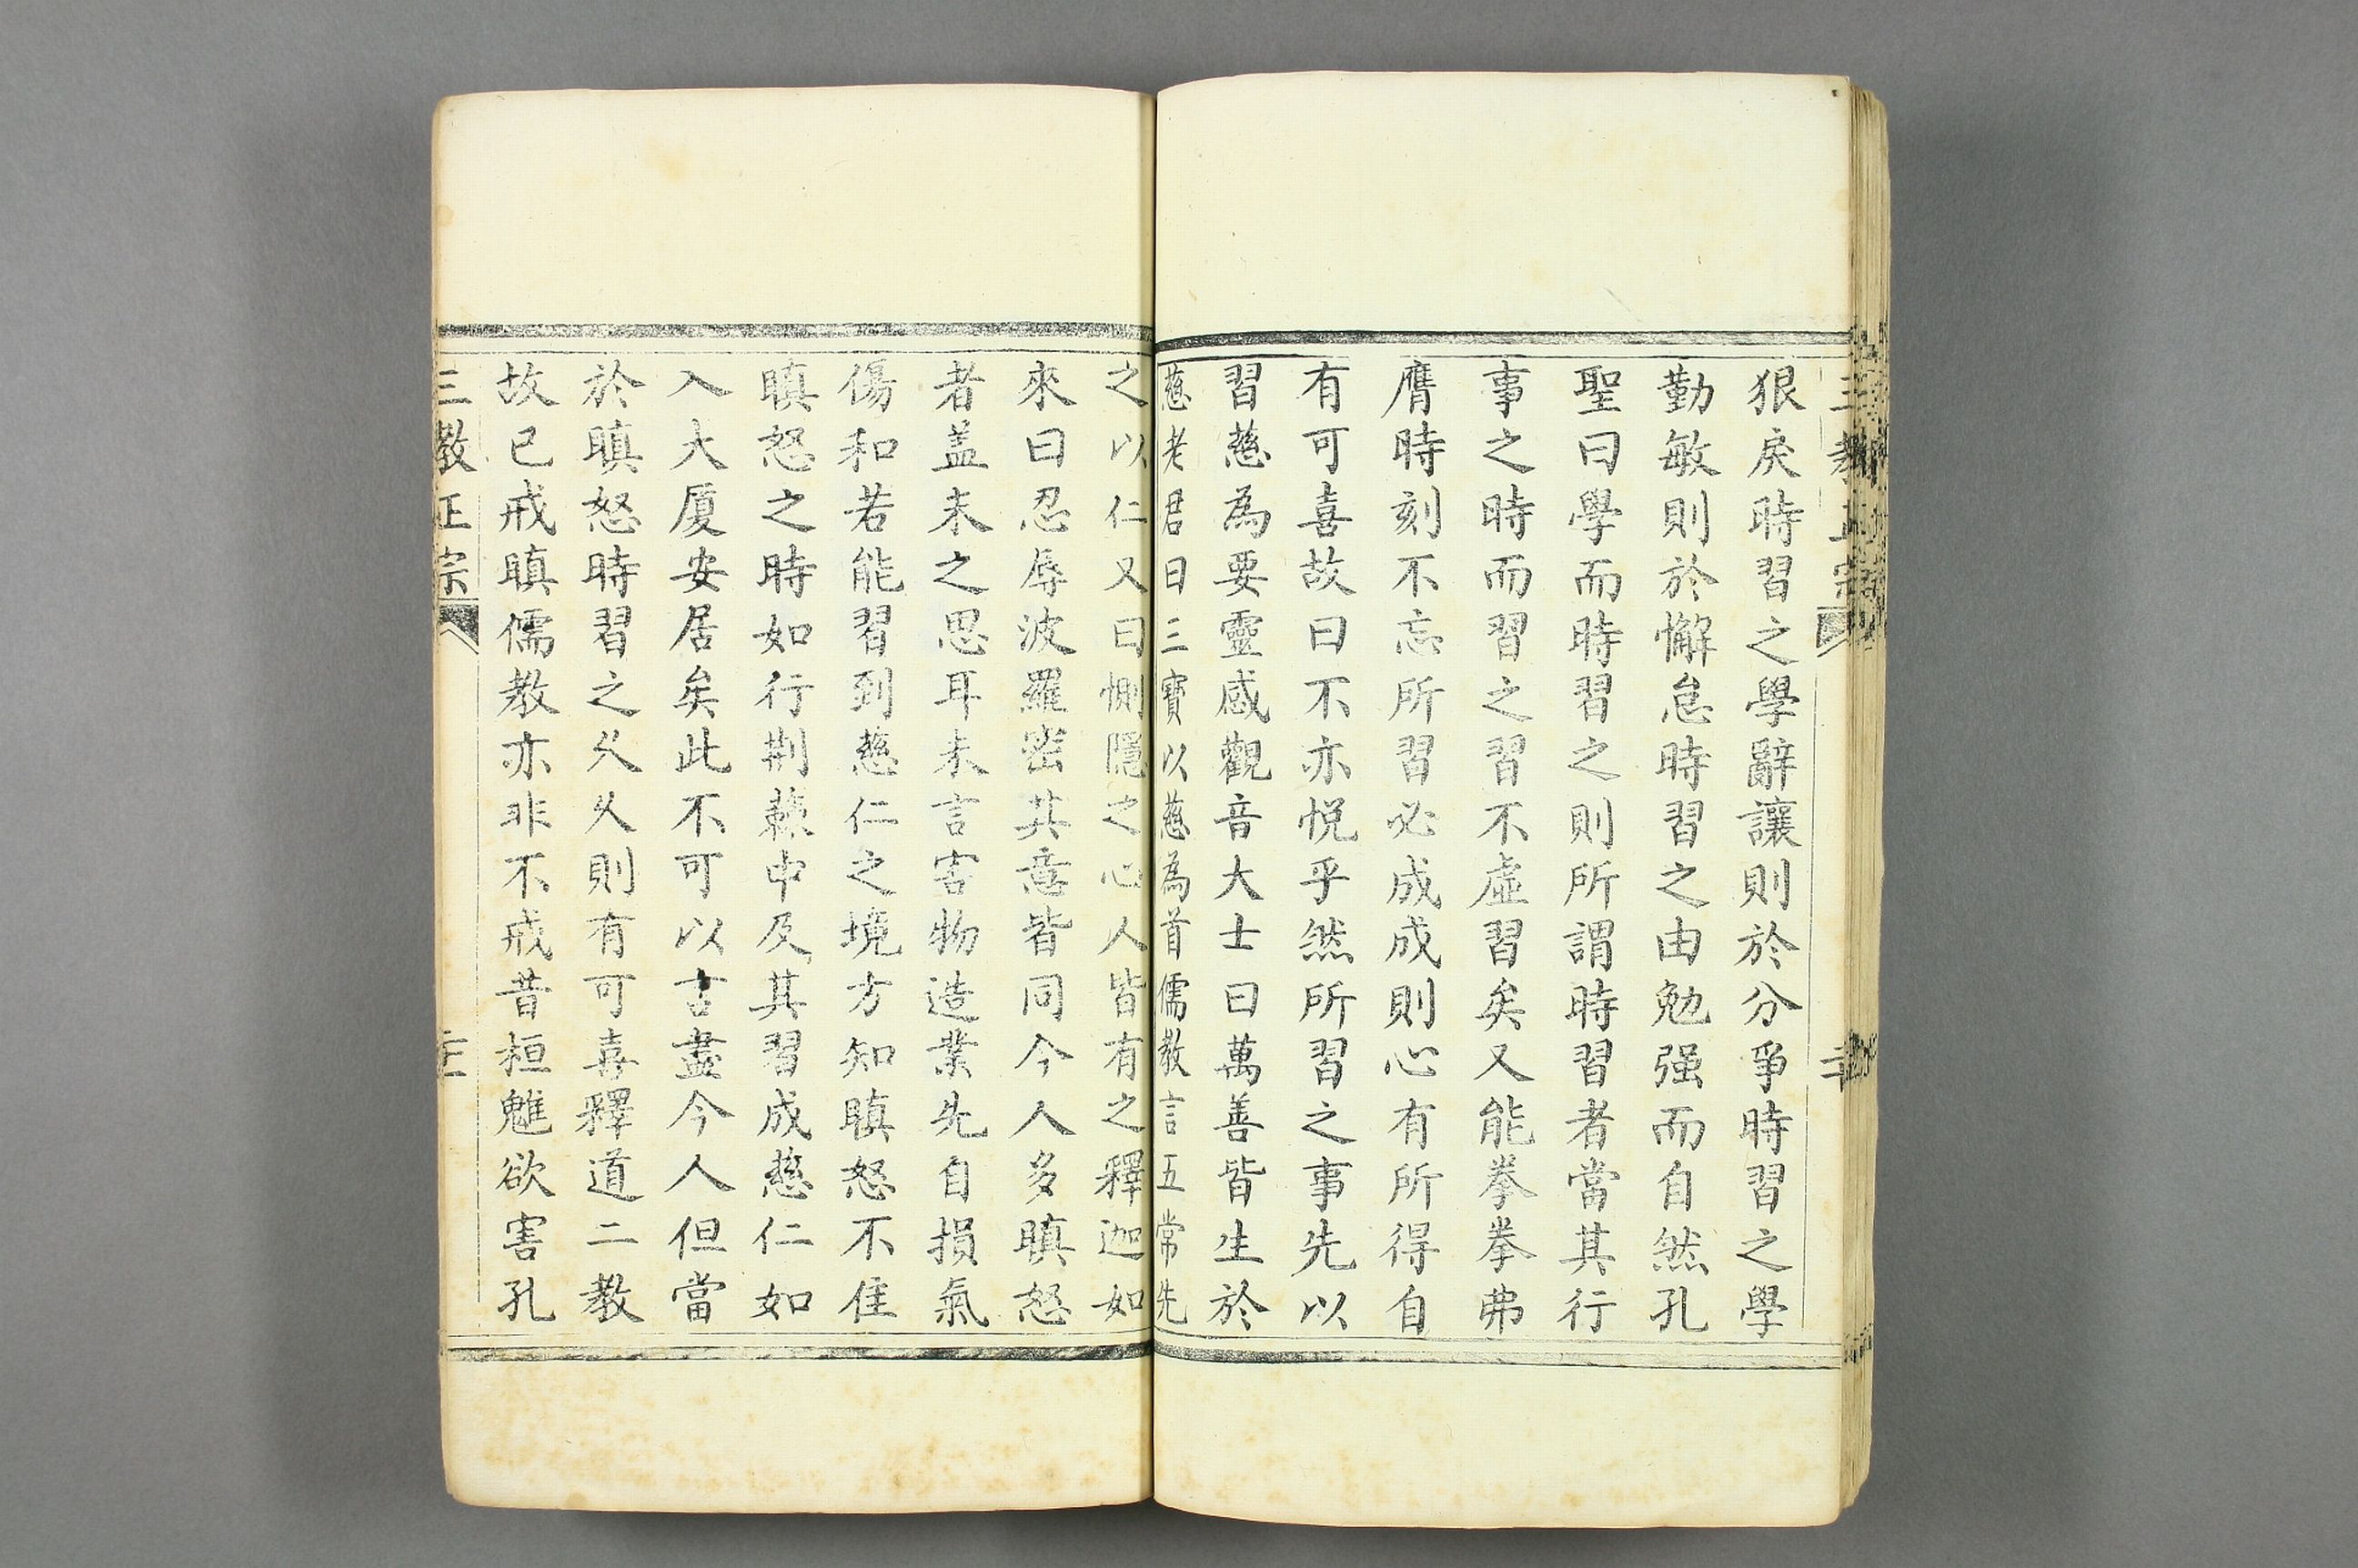 狠戾時習之學辭讓則於分爭時習之學
勤敏則於懈怠時習之由勉强而自然孔
聖曰學而時習之則所謂時習者當其行
事之時而習之習不虛習矣又能拳拳弗
膺時刻不忘所習必成成則心有所得自
有可喜故曰不亦悅乎然所習之事先以
習慈為要靈感觀音大士曰萬善皆生於
慈老君曰三寶以慈為首儒教言五常先
之以仁又曰惻隱之心人皆有之釋迦如
來曰忍辱波羅密其意皆同今人多瞋怒
者盖未之思耳未言害物造業先自損氣
傷和若能習到慈仁之境方知瞋怒不住
瞋怒之時如行荆蕀中及其習成慈仁如
入大厦安居矣此不可以言盡今人但當
於瞋怒時習之乆乆則有可喜釋道二教
故已戒瞋儒教亦非不戒昔桓魋欲害孔
三教正宗